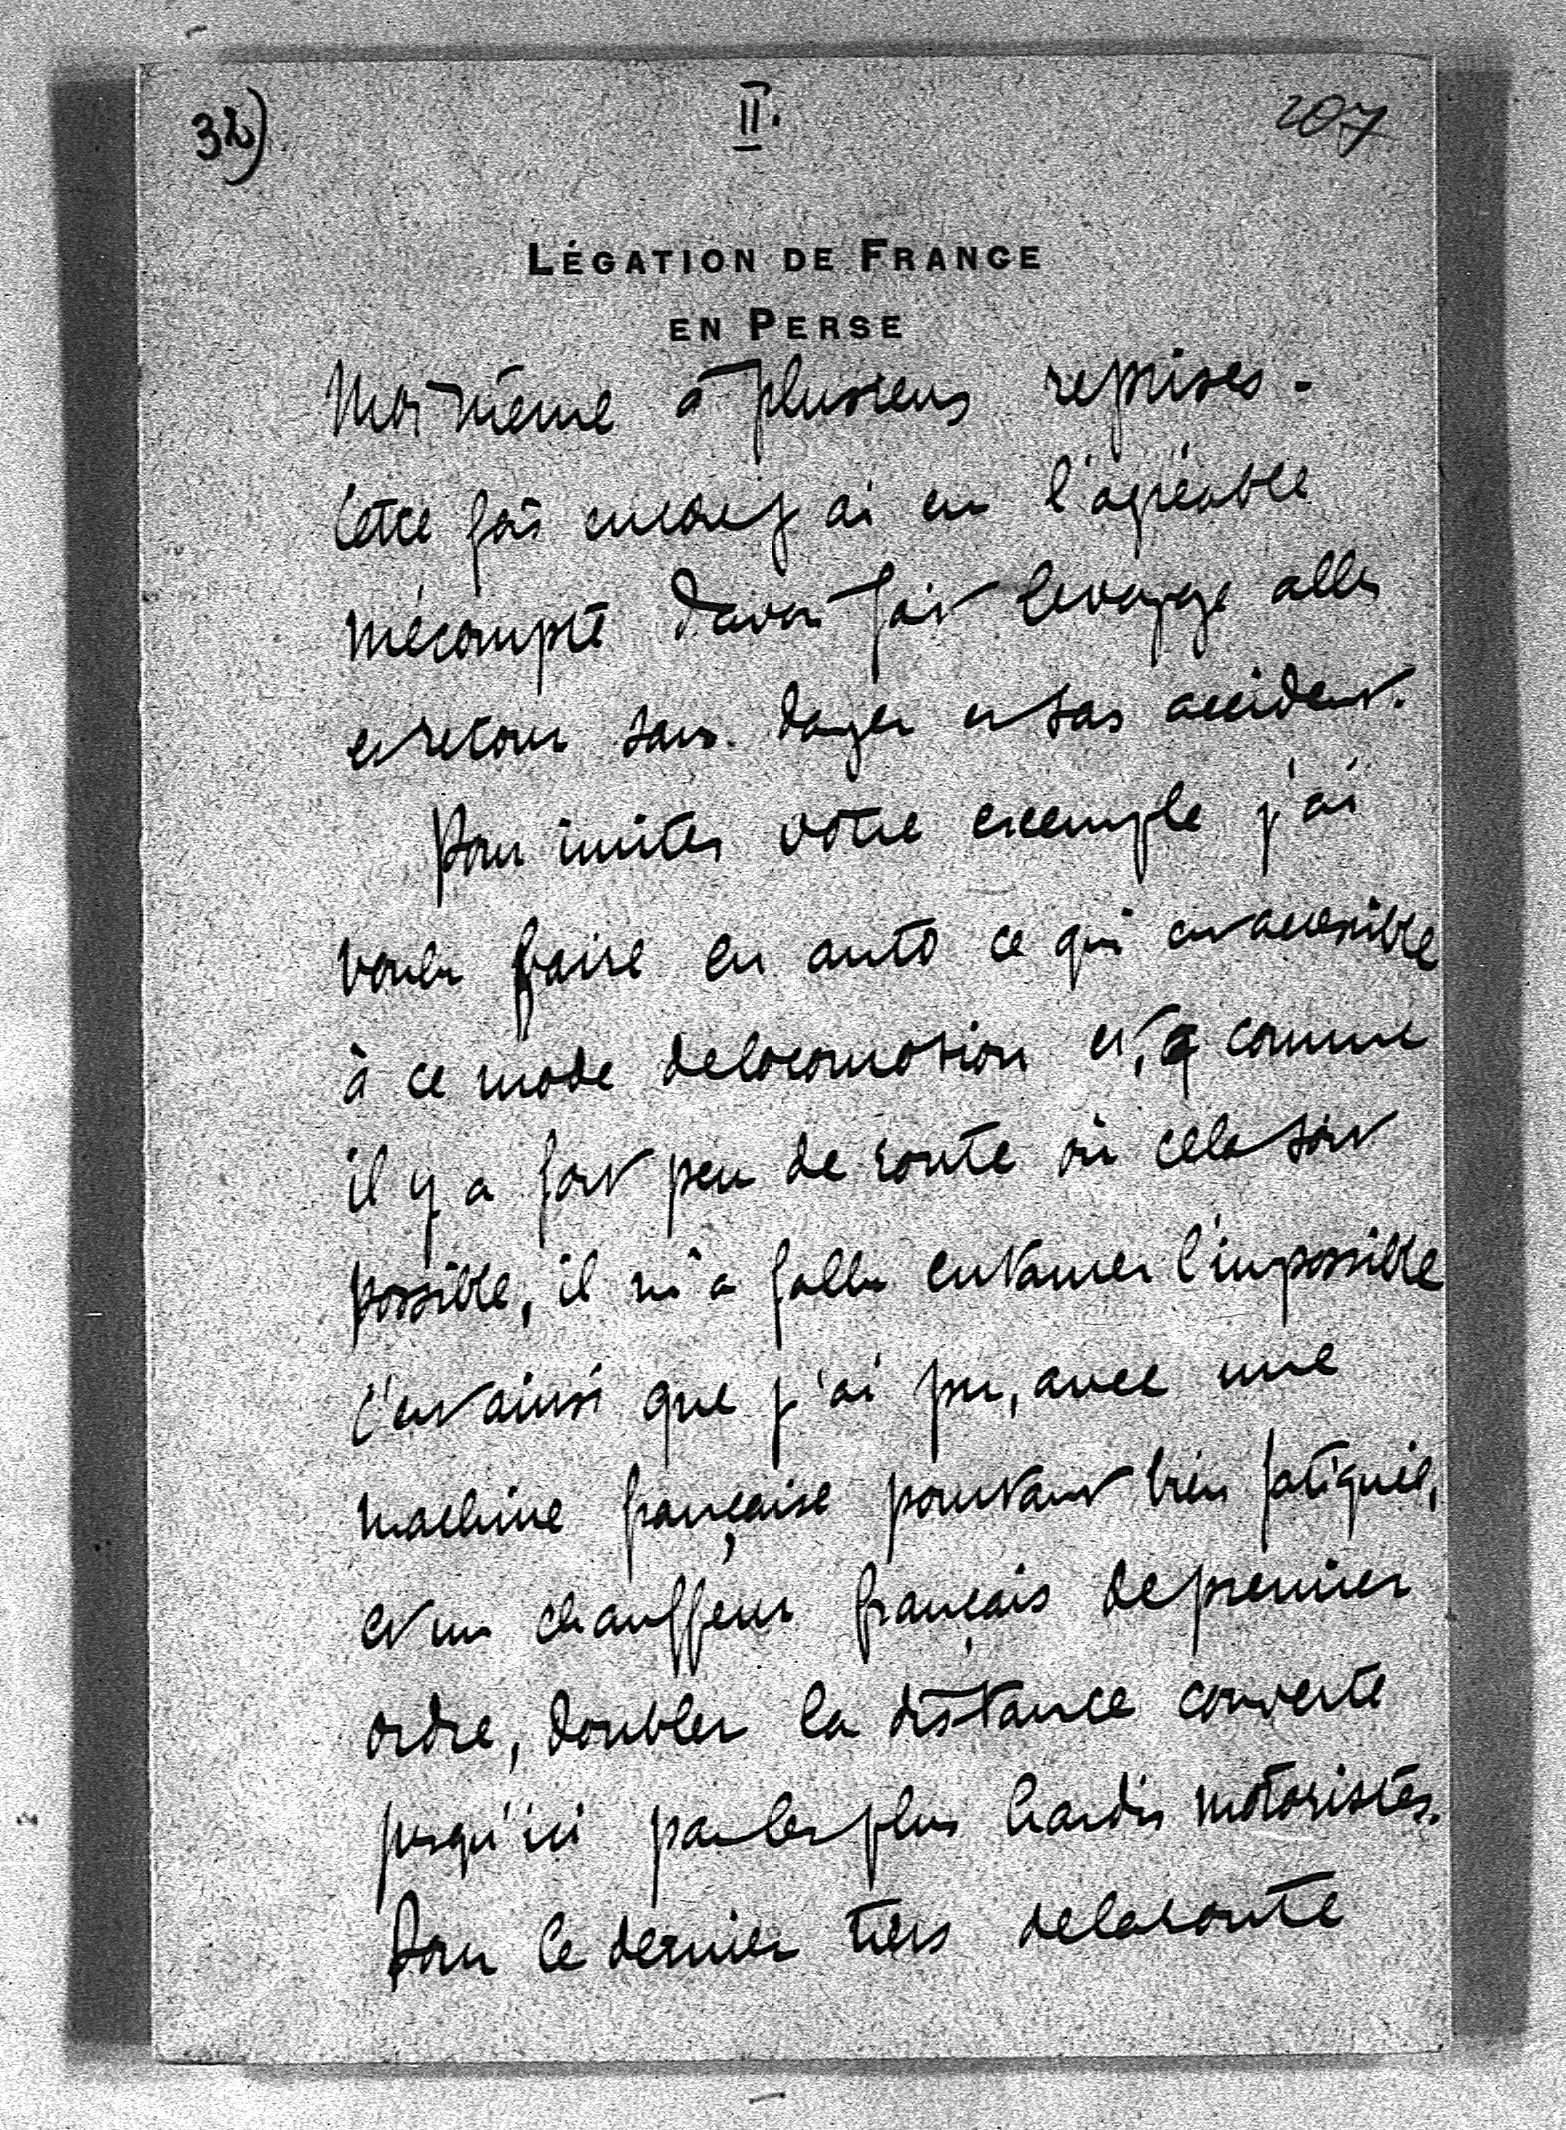 32)
II.
207
LÉGATION DE FRANCE
EN PERSE
Moi même à plusieurs reprises.
Cette fois encore j'ai eu l'agréable
mécompte d'avoir fait le voyage aller
et retour sans danger et sans accident.
Pour imiter votre exemple j'ai
voulu faire en auto ce qui est accessible
à ce mode de locomotion et, comme
il y a fort peu de route où cela soit
possible, il m'a fallu entamer l'impossible
C'est ainsi que j'ai pu, avec une
machine française pourtant bien fatiguée,
et un chauffeur français de premier
ordre, doubler la distance couverte
jusqu'ici par les plus hardis motoristes.
Pour le dernier tiers de la route